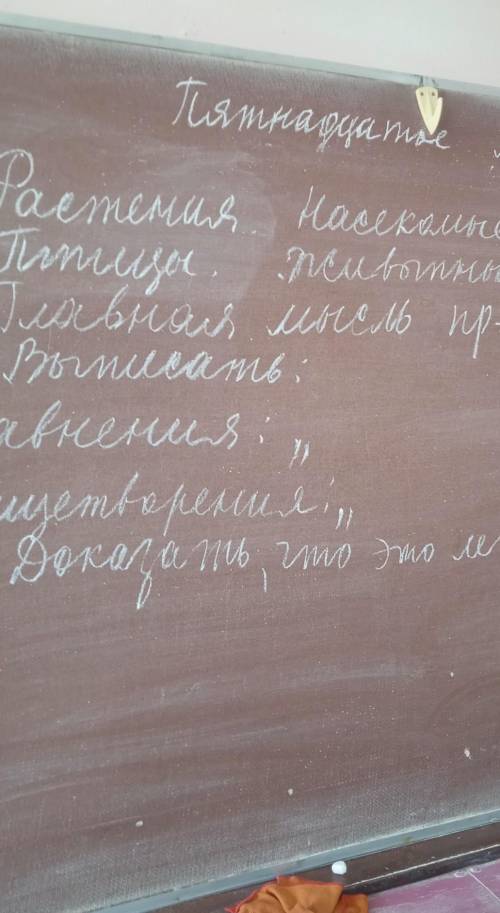 Пятнадцатое
Растения Насекомые
Птицы. Животны
Главная мысль пр-
Выписать:
авнения: „
ицетворения: „
Доказать, что это ле